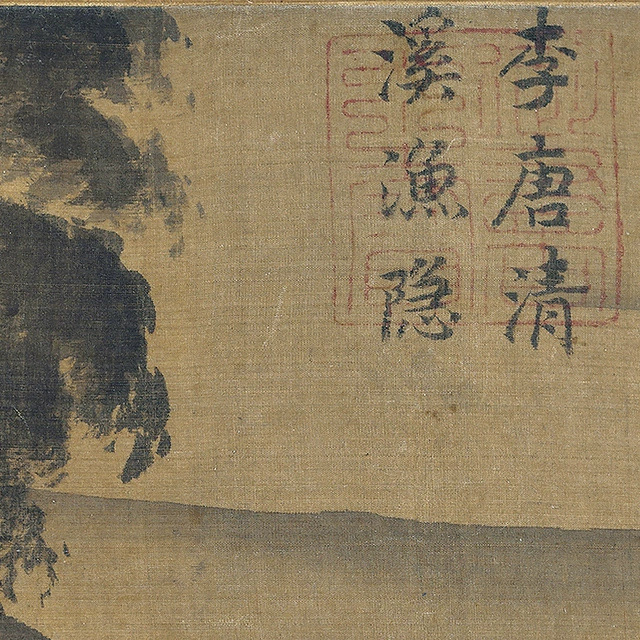 李唐清
溪漁隐